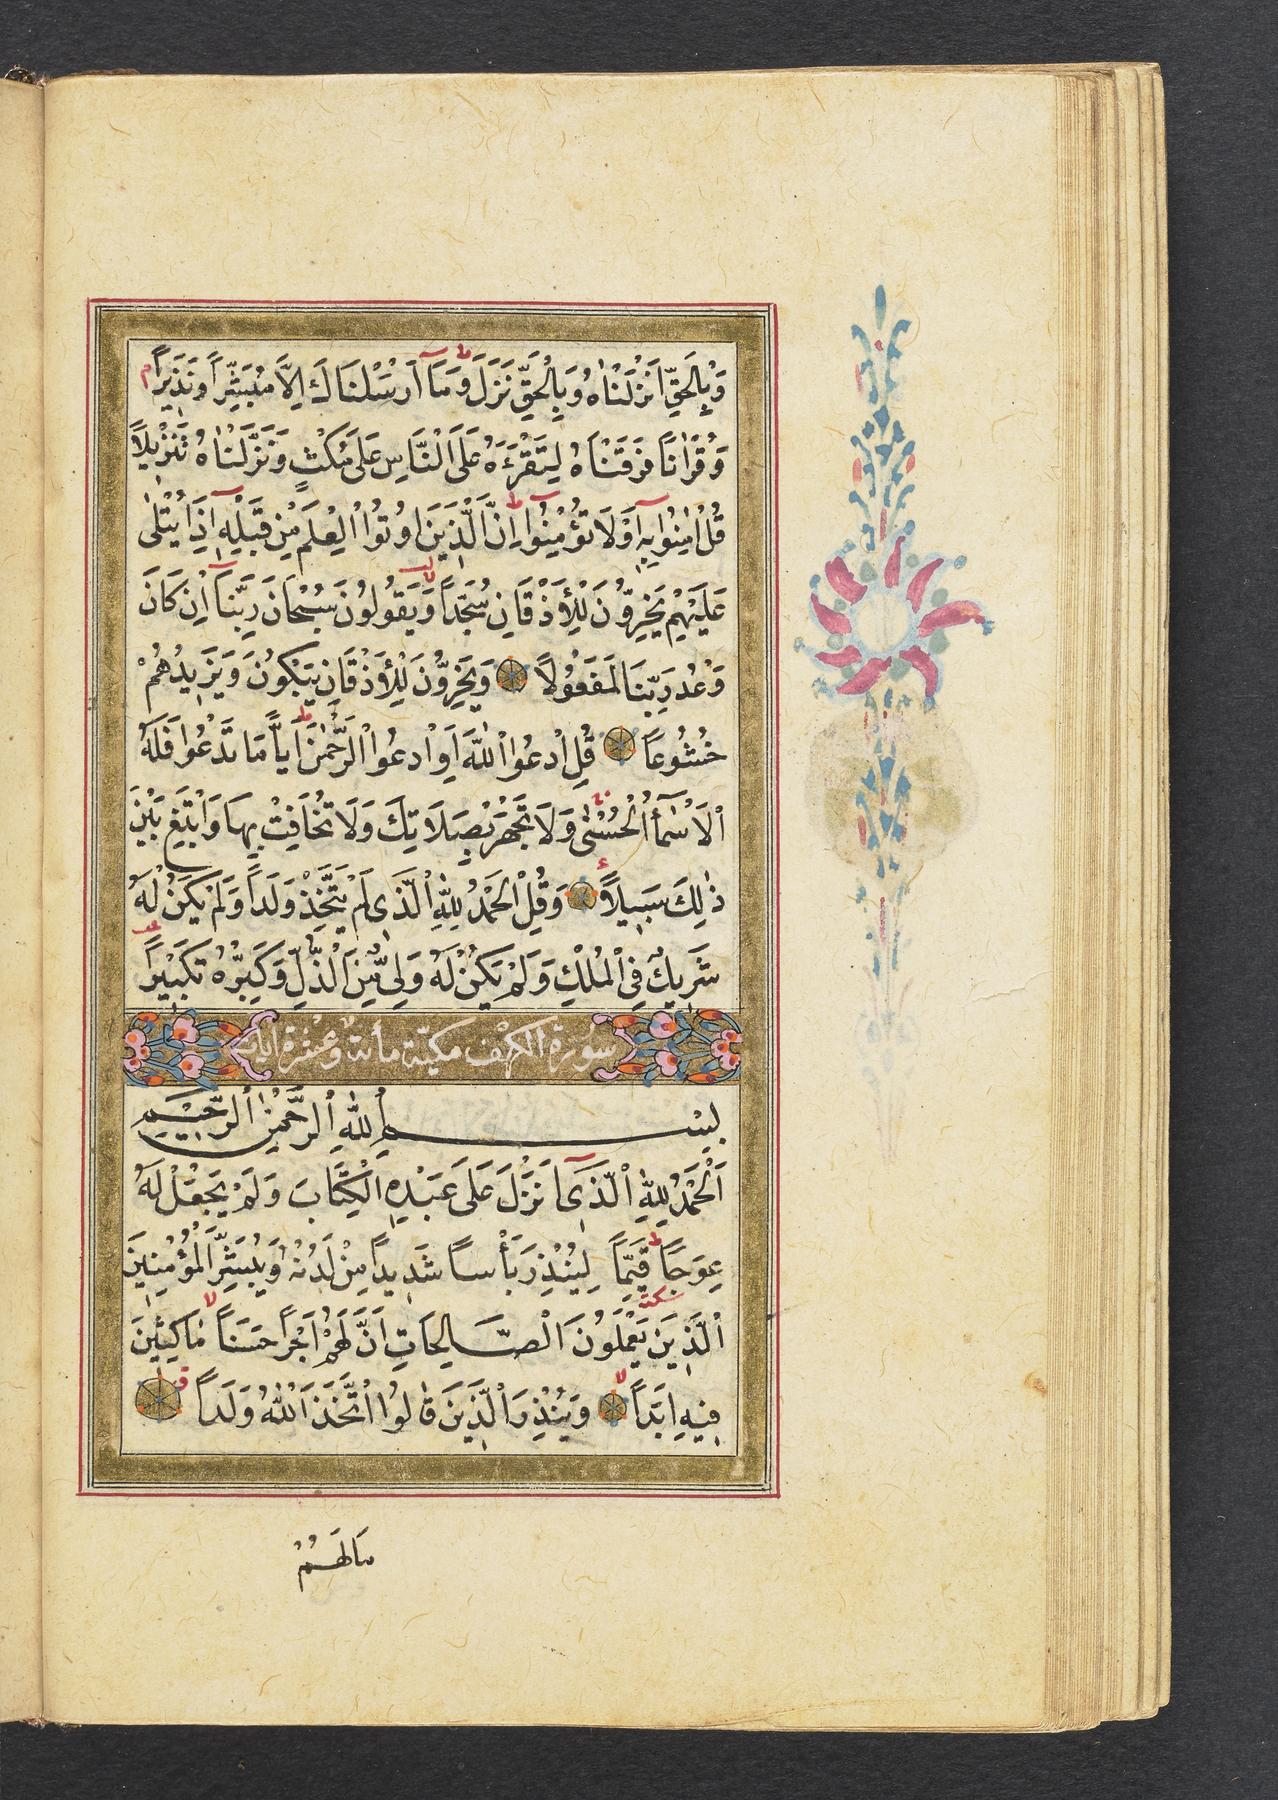 وَبِالْحَقِّ اَنْزَلْنَاهُ وَبِالْحَقِّ نَزَلَ ط وَمَٓا اَرْسَلْنَاكَ اِلَّا مُبَشِّرًا وَنَذِيرًا م
وَقُرْاٰنًا فَرَقْنَاهُ لِتَقْرَءَهُ عَلَى النَّاسِ عَلٰى مُكْثٍ وَنَزَّلْنَاهُ تَنْزِيلًا
قُلْ اٰمِنُوا بِهٖٓ اَوْلَا تُؤْمِنُٓوا ط اِنَّ الَّذِينَ اُوتُوا الْعِلْمَ مِنْ قَبْلِهٖٓ اِذَا يُتْلٰى
عَلَيْهِمْ يَخِرُّونَ لِلْاَذْقَانِ سُجَّدًا لا وَيَقُولُونَ سُبْحَانَ رَبِّنَٓا اِنْ كَانَ
وَعْدُ رَبِّنَا لَمَفْعُولًا وَيَخِرُّونَ لِلْاَذْقَانِ يَبْكُونَ وَيَزِيدُهُمْ
خُشُوعًا قُلِ ادْعُوا اللّٰهَ اَوِ ادْعُوا الرَّحْمٰنَ ط اَيًّا مَا تَدْعُوا فَلَهُ
الْاَسْمَٓاءُ الْحُسْنٰى وَلَا تَجْهَرْ بِصَلَاتِكَ وَلَا تُخَافِتْ بِهَا وَابْتَغِ بَيْنَ
ذٰلِكَ سَبِيلًا وَقُلِ الْحَمْدُ لِلّٰهِ الَّذِى لَمْ يَتَّخِذْ وَلَدًا وَلَمْ يَكُنْ لَهُ
شَرِيكٌ فِى الْمُلْكِ وَلَمْ يَكُنْ لَهُ وَلِىٌّ مِنَ الذُّلِّ وَكَبِّرْهُ تَكْبِيرًا
سورة الكهف مكيّة مائة وعشرة ايات
بِسْمِ اللّٰهِ الرَّحْمٰنِ الرَّحِيمِ
اَلْحَمْدُ لِلّٰهِ الَّذِٓى اَنْزَلَ عَلٰى عَبْدِهِ الْكِتَابَ وَلَمْ يَجْعَلْ لَهُ
عِوَجًا ط قَيِّمًا لِيُنْذِرَ بَأْسًا شَدِيدًا مِنْ لَدُنْهُ وَيُبَشِّرَ الْمُؤْمِنِينَ
سكته
الَّذِينَ يَعْمَلُونَ الصَّالِحَاتِ اَنَّ لَهُمْ اَجْرًا حَسَنًا لا مَاكِثِينَ
فِيهِ اَبَدًا لا وَيُنْذِرَ الَّذِينَ قَالُوا اتَّخَذَ اللّٰهُ وَلَدًا ق
مَالَهُمْ